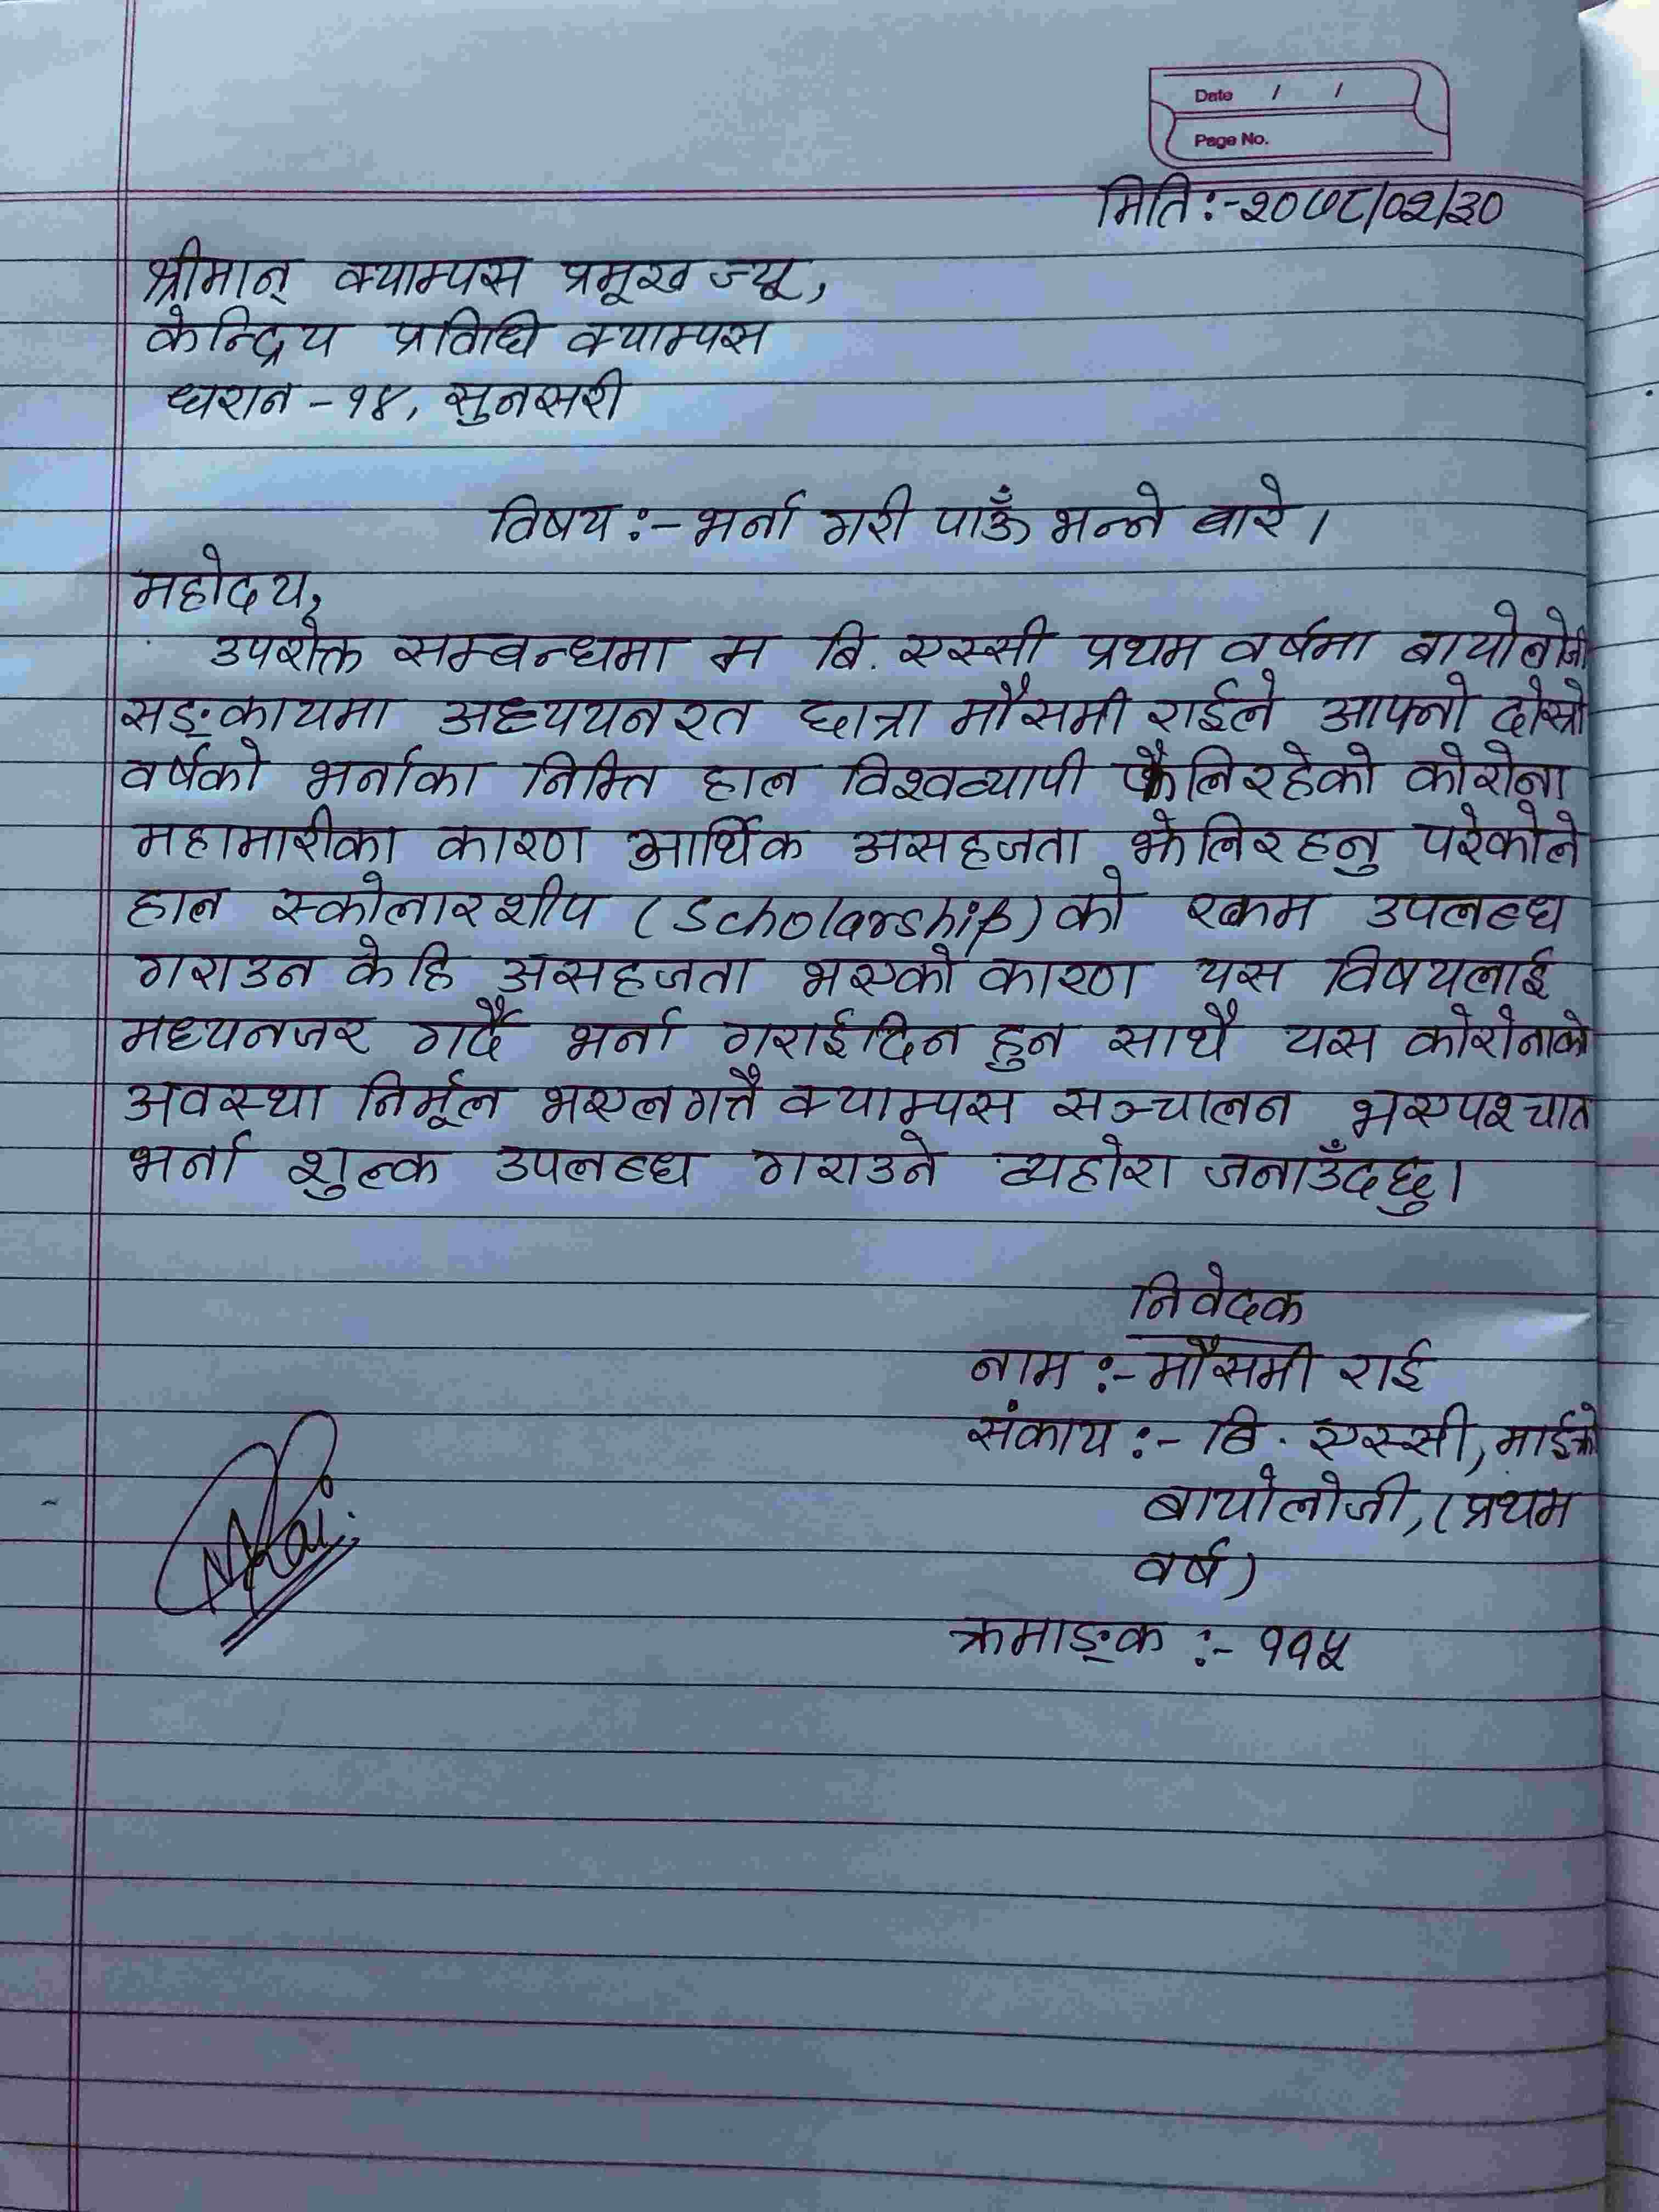 Date / /
Page No.
मिति :- २०७८/०२/३०
श्रीमान् क्याम्पस प्रमूख ज्यू,
केन्द्रिय प्रविधि क्याम्पस
धरान - १४, सुनसरी
विषय :- भर्ना गरी पाऊँ भन्ने बारे ।
महोदय,
उपरोक्त सम्बन्धमा म बि. एस्सी प्रथम वर्षमा बायोलोजी
सङ्कायमा अध्ययनरत छात्रा मौसमी राईले आफ्नो दोस्रो
वर्षको भर्नाका निम्ति हाल विश्वव्यापी फैलिरहेको कोरोना
महामारीका कारण आर्थिक असहजता झेलिरहनु परेकोले
हाल स्कोलारशीप (Scholarship) को रकम उपलब्ध
गराउन केहि असहजता भएको कारण यस विषयलाई
मध्यनजर गर्दै भर्ना गराईदिन हुन साथै यस कोरोनाको
अवस्था निर्मूल भएलगत्तै क्याम्पस सञ्चालन भएपश्चात
भर्ना शुल्क उपलब्ध गराउने व्यहोरा जनाउँदछु।
निवेदक
नाम :- मौसमी राई
संकाय :- बि. एस्सी, माईक्रो
बायोलोजी, (प्रथम
वर्ष)
Rai.
क्रमाङ्क :- ११५